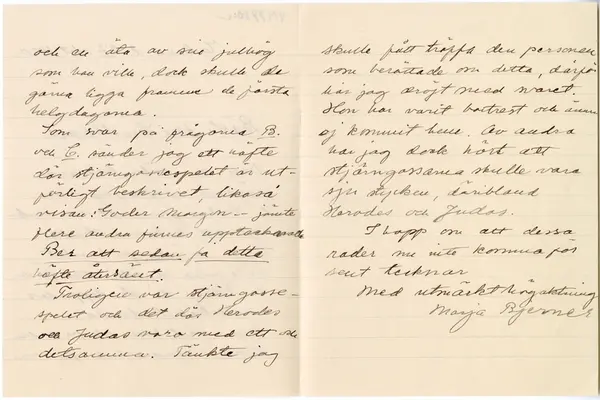 och en äta av sin julhög
som han ville, dock skulle de
gärna ligga framme de första
helgdagarna.
Som svar på frågorna B.
och C. sänder jag ett häfte
där stjärngossespelet är ut-
förligt beskrivet, likaså
visan: Goder Morgon – jämte
flere andra finnes upptecknade
Ber att sedan få detta
häfte återsänt.
Troligen var stjärngosse-
spelet och det där Herodes
och Judas voro med ett och
detsamma. Tänkte jag
skulle fått träffa den personen
som berättade om detta, därför
har jag dröjt med svaret.
Hon har varit bortrest och ännu
ej kommit hem. Av andra
har jag dock hört att
stjärngossarna skulle vara
sju stycken, däribland
Herodes och Judas.
I hopp om att dessa
rader nu inte komma för
sent tecknar
Med utmärkt högaktning
Maija